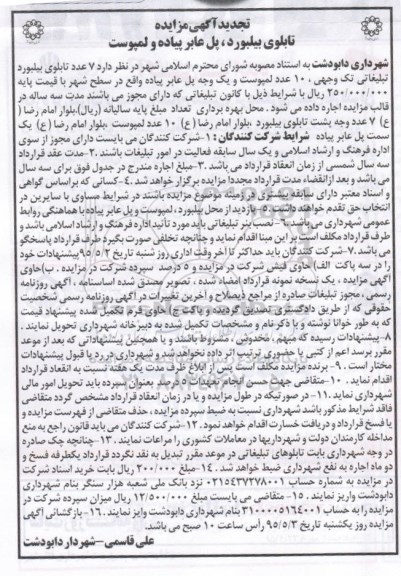 تجدیدآگهی مزایده
تابلوی بیلبورد، پل عابر پیاده و لمپوست
شهرداری دابودشت به استناد مصوبه شورای محترم اسلامی شهر در نظر دارد ۷ عدد تابلوی بیلبورد
تبلیغاتی تک وجهی ، ۱۰ عدد لمپوست و یک وجه پل عابر پیاده واقع در سطح شهر با قیمت پایه
۲۵۰/۰۰۰/۰۰۰ ریال با شرایط ذیل با کانون تبلیغاتی که دارای مجوز می باشند مدت سه ساله در
قالب مزایده اجاره داده می شود . محل بهره برداری تعداد مبلغ پایه سالیانه (ریال).بلوار امام رضا (
ع) ۷ عدد وجه پشت تابلوی بیلبورد ،بلوار امام رضا (ع) ۱۰ عدد لمپوست ،بلوار امام رضا (ع) یک
سمت پل عابر پیاده شرایط شرکت کنندگان :۱-شرکت کنندگان می بایست دارای مجوز از سوی
اداره فرهنگ و ارشاد اسلامی و یک سال سابقه فعالیت در امور تبلیغات باشند .۲-مدت عقد قرارداد
سه سال شمسی از زمان انعقاد قرارداد می باشد .۳-مبلغ اجاره مندرج در جدول فوق برای سه سال
می باشد و بعد ازانقضاء مدت قرارداد مجددا مزایده برگزار خواهد شد .۴-کسانی که براساس گواهی
و اسناد معتبر دارای سابقه بیشتری در زمینه موضوع مزایده باشند در شرایط مساوی با سایرین در
انتخاب حق تقدم خواهند داشت .۵-بازدید از محل بیلبورد ، لمپوست و پل عابر پیاده با هماهنگی روابط
عمومی شهرداری می باشد .۶-نصب بنر تبلیغاتی باید مورد تأئید اداره فرهنگ و ارشاد اسلامی باشد و
طرف قرارداد مکلف است بر این مبنا اقدام نماید و چنانچه تخلفی صورت بگیرد طرف قرارداد پاسخگو
می باشد .۷-شرکت کنندگان باید حداکثر تا آخر وقت اداری روز شنبه تاریخ ۹۵/۵/۲ پیشنهادات خود
را در سه پاکت الف) حاوی فیش شرکت در مزایده و ۵ درصد سپرده شرکت در مزایده . ب)حاوی
آگهی مزایده ، یک نسخه نمونه قرارداد امضاء شده ، تصویر مصدق شده اساسنامه ، آگهی روزنامه
رسمی ، مجوز تبلیغات صادره از مراجع ذیصلاح و آخرین تغییرات در آگهی روزنامه رسمی شخصیت
حقوقی که از طریق دادگستری تصدیق گردیده و پاکت ج) حاوی فرم تکمیل شده پیشنهاد قیمت
که به طور خوانا نوشته و با ذکر نام و مشخصات تکمیل شده به دبیرخانه شهرداری تحویل نمایند .
۸-پیشنهادات رسیده که مبهم ، مخدوش ، مشروط باشند و یا همچنین پیشنهاداتی که بعد از موعد
مقرر برسد اعم از کتبی یا حضوری ترتیب اثر داده نخواهد شد و شهرداری در رد یا قبول پیشنهادات
مختار است .۹- برنده مزایده مکلف است پس از ابلاغ ظرف مدت یک هفته نسبت به انعقاد قرارداد
اقدام نماید . ۱۰-متقاضی جهت حسن انجام تعهدات ضمانت بعنوان سپرده باید تحویل امور مالی
شهرداری نماید.۱۱- در صورتیکه در طول مزایده و یا در زمان انعقاد قرارداد مشخص گردد متقاضی
فاقد شرایط مذکور باشد شهرداری نسبت به ضبط سپرده مزایده ، حذف متقاضی از فهرست مزایده و
یا فسخ قرارداد و دریافت خسارت اقدام خواهد نمود .۱۲-شرکت کنندگان می باید قانون راجع به منع
مداخله کارمندان دولت و شهرداریها در معاملات کشوری را مراعات نمایند .۱۳-چنانچه چک صادره
در وجه شهرداری بابت تابلوهای تبلیغاتی در موعد مقرر تبدیل به نقد نگردد قرارداد یکطرفه فسخ و
دو ماه اجاره به نفع شهرداری ضبط خواهد شد .۱۴-مبلغ ۲۰۰/۰۰۰ ریال بابت خرید اسناد شرکت
در مزایده به شماره حساب ۰۲۱۵۴۳۷۲۷۸۰۰۱ نزد بانک ملی شعبه هزار سنگر بنام شهرداری
دابودشت واریز نمایند .۱۵- متقاضی می بایست مبلغ ۱۲/۵۰۰/۰۰۰ ریال میزان سپرده شرکت در
مزایده را به حساب ۳۱۰۰۰۰۵۱۶۴۰۰۱ بنام شهرداری دابودشت واریز نمایند .۱۶- بازگشائی آگهی
مزایده روز یکشنبه تاریخ ۹۵/۵/۳ رأس ساعت ۱۰ صبح می باشد.
علی قاسمی-شهردار دابودشت